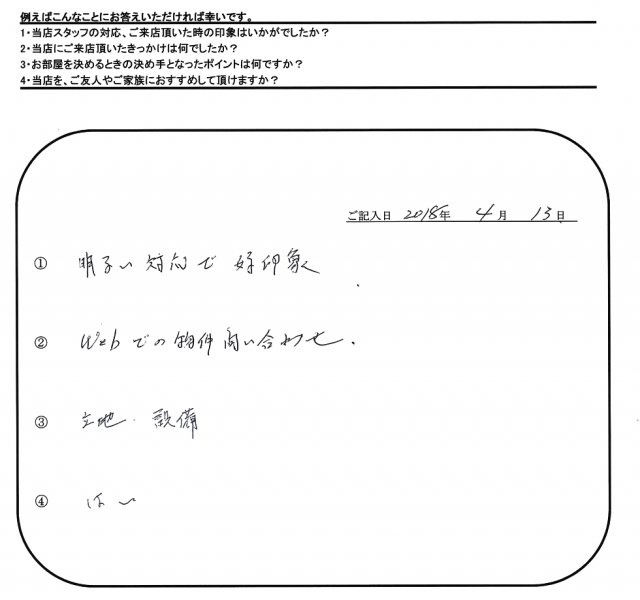 例えばこんなことにお答えいただければ幸いです。
1・当店スタッフの対応、ご来店頂いた時の印象はいかがでしたか？
2・当店にご来店頂いたきっかけは何でしたか？
3・お部屋を決めるときの決め手となったポイントは何ですか？
4・当店を、ご友人やご家族におすすめして頂けますか？
ご記入日 2018年 4月 13日
① 明るい対応で好印象
② Webでの物件問い合わせ.
③ 立地・設備
④ はい